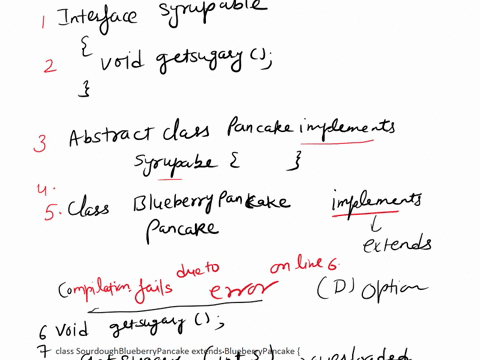 1 Interface Syrupable
{
2 void getsugary ();
}
3 Abstract class Pancake implements
Syrupabe { }
4.
5. Class BlueberryPancake implements
Pancake
extends
Compilation fails due to error on line 6.
(D) Option
6 void getsugary ();
7 class SourdoughBlueberryPancake extends BlueberryPancake {
overloaded